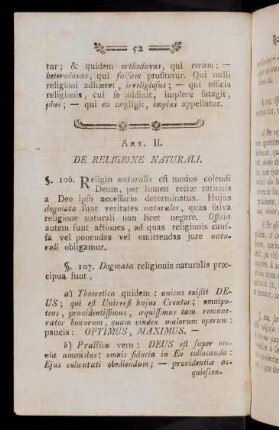 52
tur; & quidem orthodoxus, qui veram; —
heterodoxus, qui falsam profitetur. Qui nulli
religioni adhæret, irreligiosus; — qui officia
religionis, cui se addixit, implere satagit,
pius; — qui ea negligit, impius appellatur.
ART. II.
DE RELIGIONE NATURALI.
§. 106. Religio naturalis est modus colendi
Deum, per lumen rectæ rationis
a Deo ipso necessario determinatus. Hujus
dogmata sunt veritates naturales, quas salva
religione naturali non licet negare. Officia
autem sunt actiones, ad quas religionis caus-
sa vel ponendas vel omittendas jure natu-
rali obligamur.
§. 107. Dogmata religionis naturalis præ-
cipua sunt,
a) Theoretica quidem: unicus existit DE-
US; qui est Universi hujus Creator; omnipo-
tens, providentissimus, æquissimus tam remune-
rator bonorum, quam vindex malorum operum:
paucis: OPTIMUS, MAXIMUS. —
b) Practica vero: DEUS est super om-
nia amandus: omnis fiducia in Eo collocanda:
Ejus voluntati obediendum; — providentia ac-
quiescen-